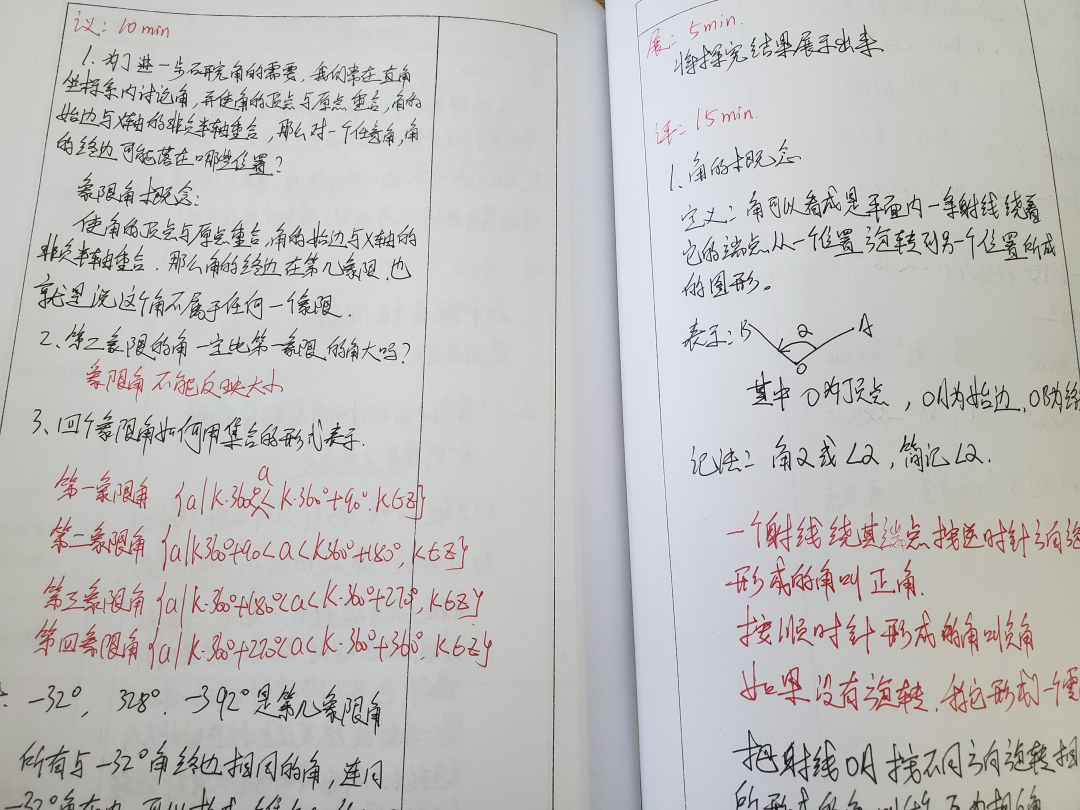 议: 10min
1. 为了进一步研究角的需要, 我们常在直角
坐标系内讨论角, 并使角的顶点与原点重合, 角的
始边与X轴的非负半轴重合, 那么对一个任意角, 角
的终边可能落在哪些位置?
象限角概念:
使角的顶点与原点重合, 角的始边与X轴的
非负半轴重合. 那么角的终边在第几象限. 也
就是说这个角不属于任何一个象限.
2、第二象限的角一定比第一象限的角大吗?
象限角不能反映大小
3、四个象限角如何用集合的形式表示.
第一象限角 {a|K·360°<a<K·360°+90°, K∈Z}
第二象限角 {a|K360°+90<a<K360°+180°, K∈Z}
第三象限角 {a|K·360°+180°<a<K·360°+270°, K∈Z}
第四象限角 {a|K·360°+270°<a<K·360°+360°, K∈Z}
-32°, 328°. -392°是第几象限角
所有与-32°角终边相同的角, 连同
-32°角在内
展: 5min.
将探究结果展示出来
评: 15min.
1. 角的概念
定义: 角可以看成是平面内一条射线绕着
它的端点从一个位置旋转到另一个位置所成
的图形。
表示: B α A
O
其中O为顶点, OA为始边, OB为终
记法: 角α或∠α, 简记∠α.
一个射线绕其端点按逆时针方向旋
形成的角叫正角.
按顺时针形成的角叫负角
如果没有旋转. 我它形成一个零
把射线OA按不同方向旋转相
所形成的角